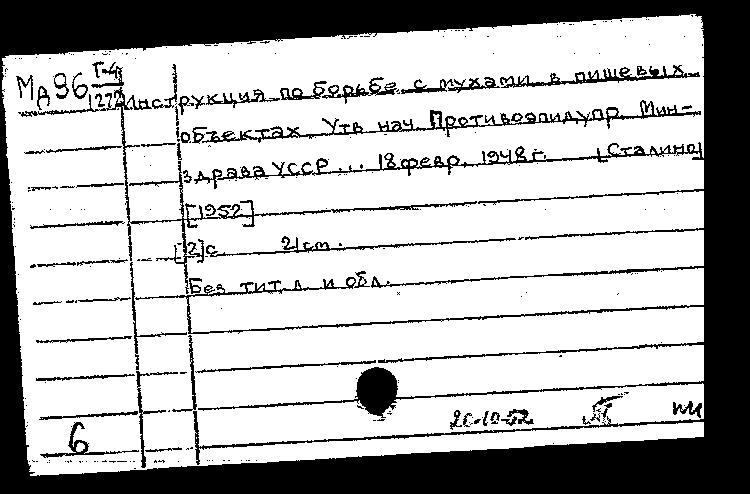 Мд96 Г-4
1272
Инструкция по борьбе с мухами в пищевых
объектах. Утв нач. Противоэпидупр. Мин-
здрава УССР ... 18 февр. 1948 г. [Сталино]
[1952]
[2]с. 21 cm.
Без тит. л. и обл.
6